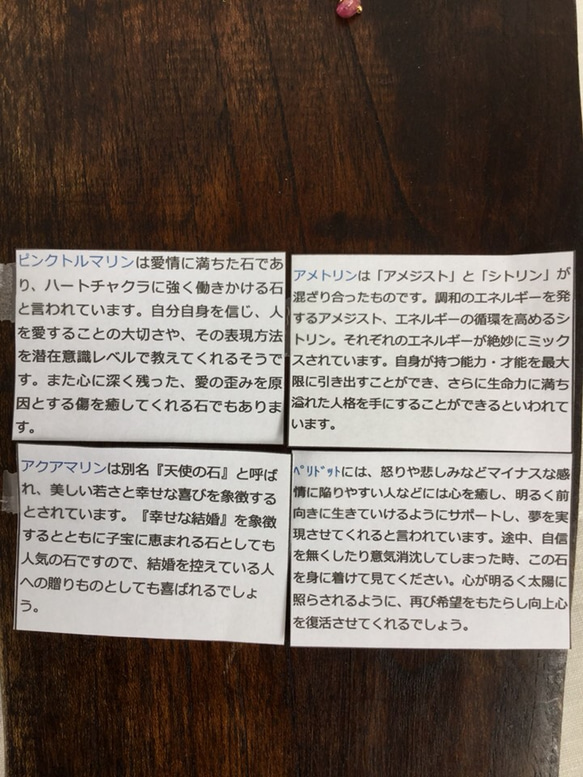 ピンクトルマリンは愛情に満ちた石であ
り、ハートチャクラに強く働きかける石
と言われています。自分自身を信じ、人
を愛することの大切さや、その表現方法
を潜在意識レベルで教えてくれるそうで
す。また心に深く残った、愛の歪みを原
因とする傷を癒してくれる石でもありま
す。
アメトリンは「アメジスト」と「シトリン」が
混ざり合ったものです。調和のエネルギーを発
するアメジスト、エネルギーの循環を高めるシ
トリン。それぞれのエネルギーが絶妙にミック
スされています。自身が持つ能力・才能を最大
限に引き出すことができ、さらに生命力に満ち
溢れた人格を手にすることができるといわれて
います。
アクアマリンは別名『天使の石』と呼ば
れ、美しい若さと幸せな喜びを象徴する
とされています。『幸せな結婚』を象徴
するとともに子宝に恵まれる石としても
人気の石ですので、結婚を控えている人
への贈りものとしても喜ばれるでしょ
う。
ﾍﾟﾘﾄﾞｯﾄには、怒りや悲しみなどマイナスな感
情に陥りやすい人などには心を癒し、明るく前
向きに生きていけるようにサポートし、夢を実
現させてくれると言われています。途中、自信
を無くしたり意気消沈してしまった時、この石
を身に着けて見てください。心が明るく太陽に
照らされるように、再び希望をもたらし向上心
を復活させてくれるでしょう。